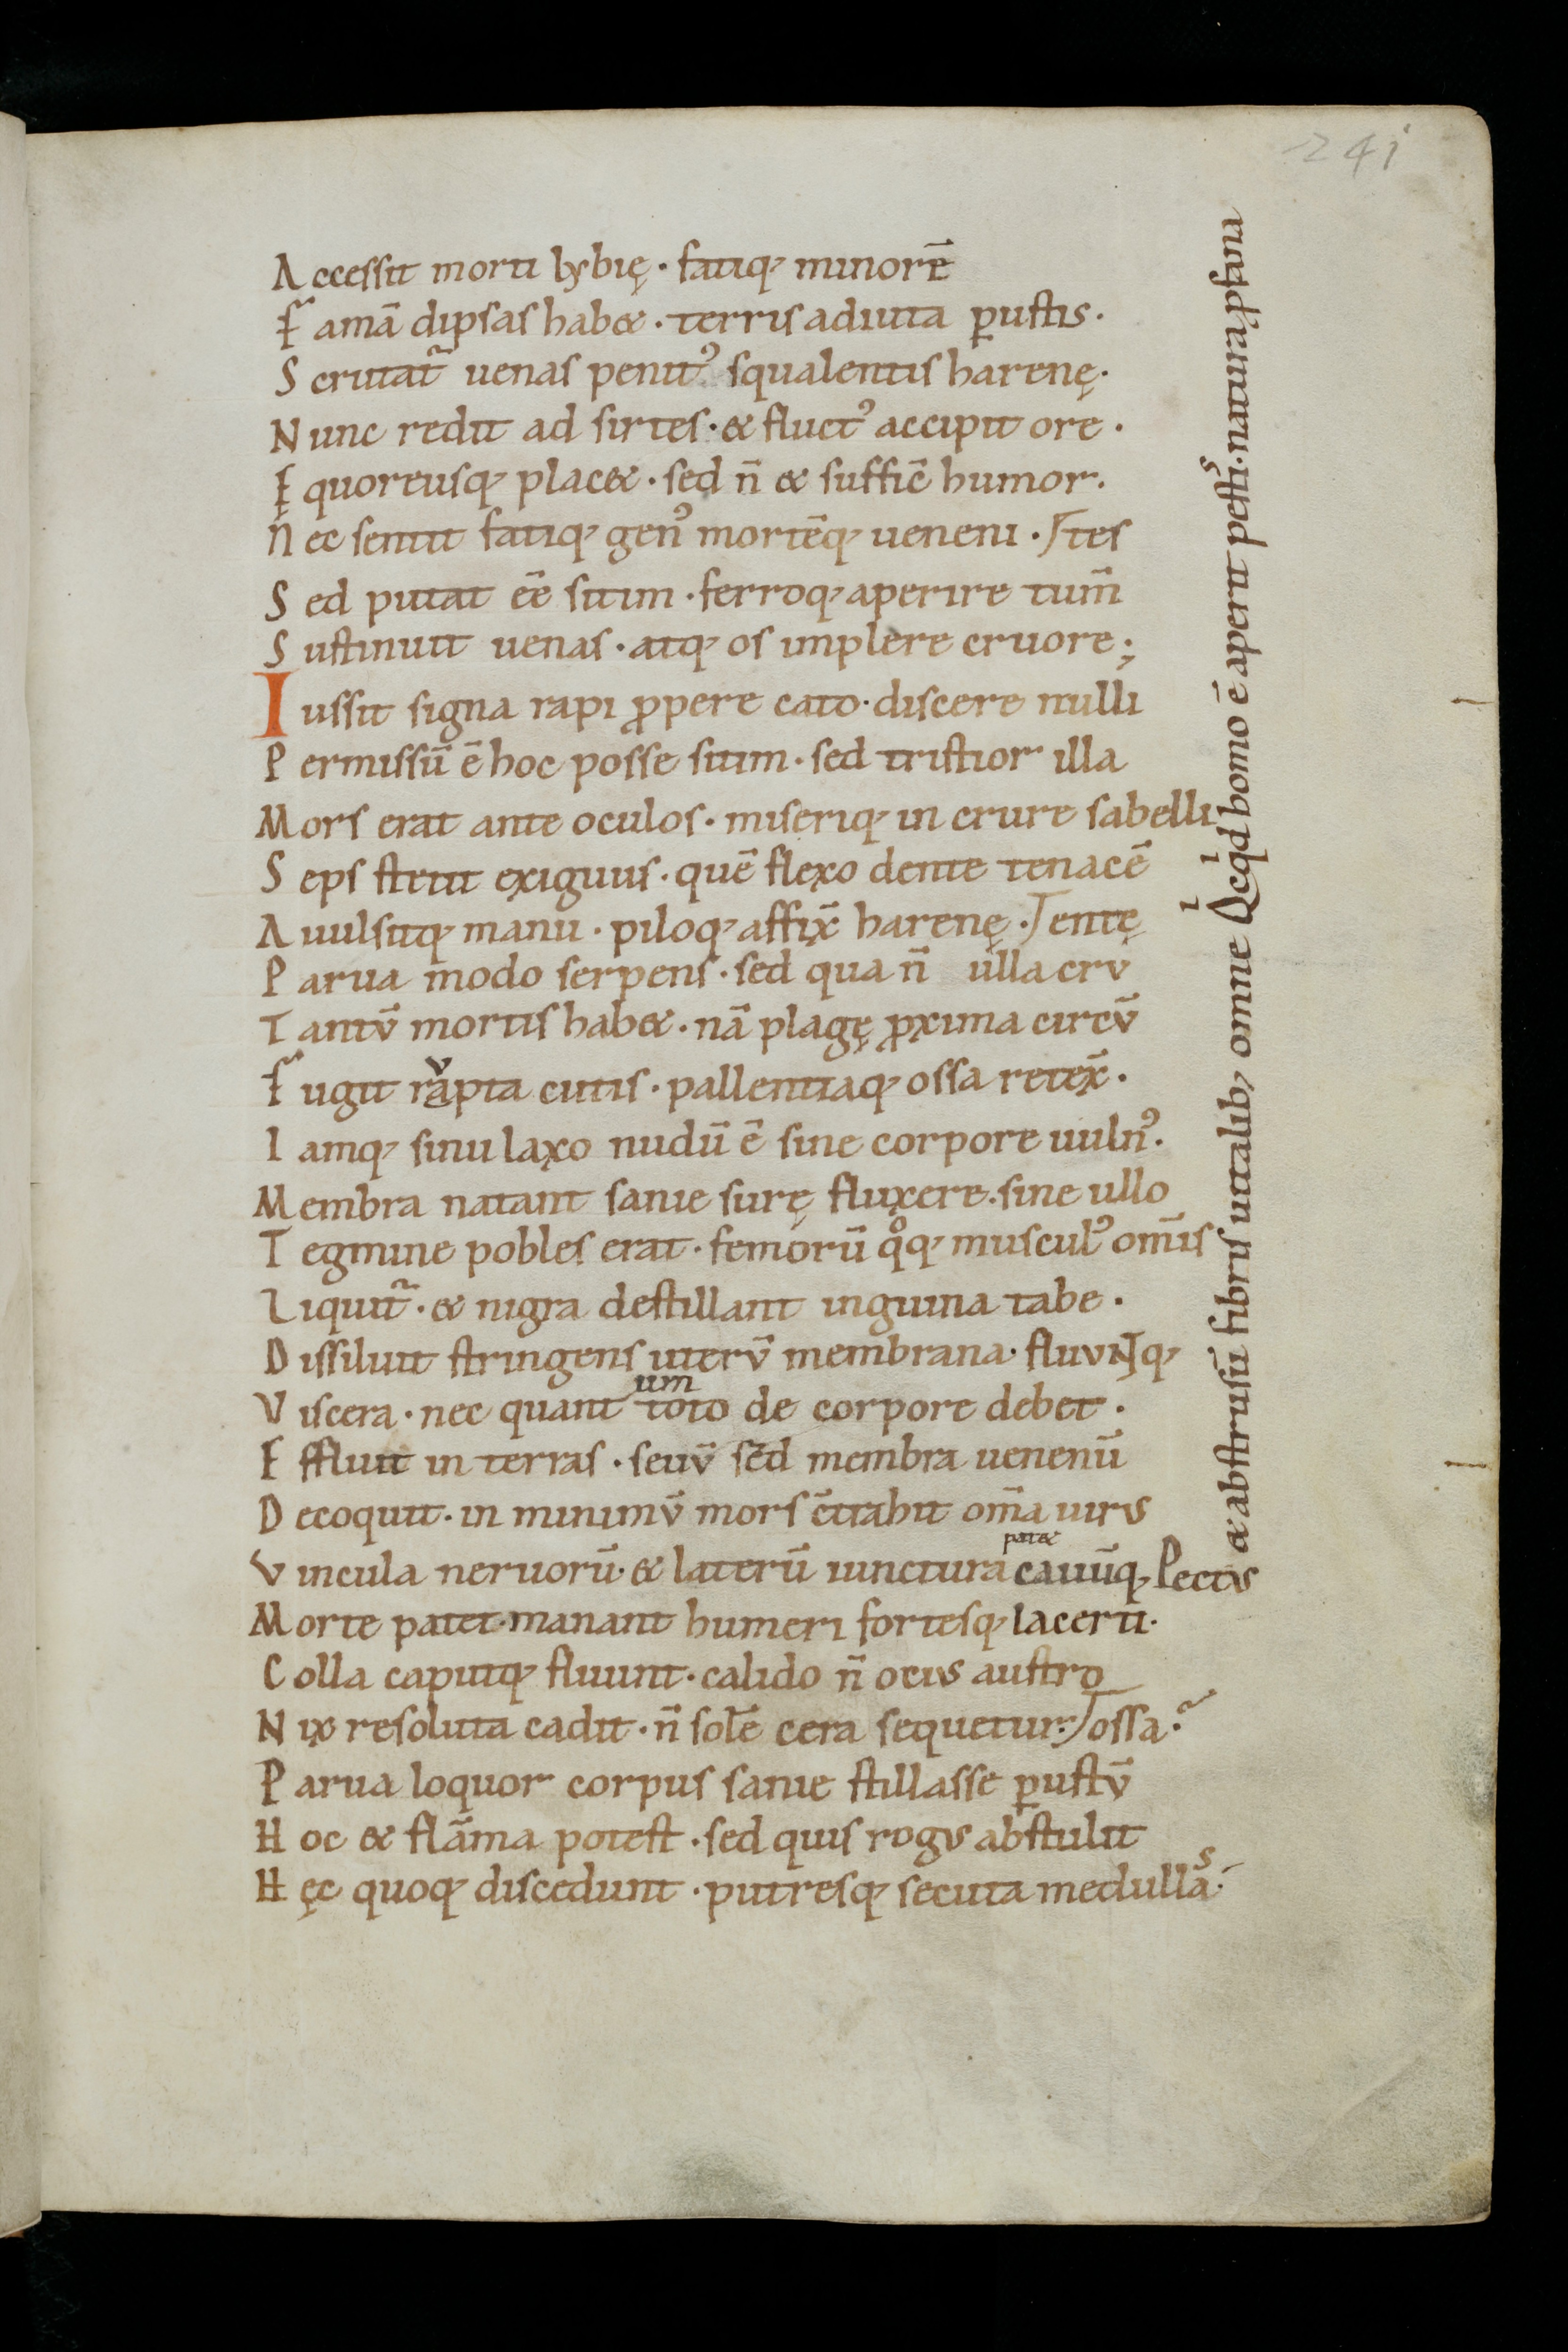 241
Accessit morti lybię · fatiq; minorē
Famā dipsas hab& · terris adiuta ꝑustis ·
Scrutat᷑ uenas penit᾽ squalentis harenę ·
Nunc redit ad sirtes · & fluct᾽ accipit ore ·
Ęquoreusq; plac& · sed n̄ & sufficī humor ·
Nec sentit fatiq; gen᾽ mortēq; ueneni · tes
Sed putat ēē sitim · ferroq; aperire tum̄
Sustinuit uenas · atq; os implere cruore ;
Iussit signa rapi ꝓpere cato · discere nulli
Permissū ē hoc posse sitim · sed tristior illa
Mors erat ante oculos · miseriq; in crure sabelli
Seps stetit exiguus · quē flexo dente tenacē
Auulsitq; manu · piloq; affix̄ harenę · entę
Parua modo serpens · sed qua n̄ ulla cru
Tantv̄ mortis hab& · nā plagę ꝓxima circv̄
Fugit rapta cutis · pallentiaq; ossa retex̄ ·
Iamq; sinu laxo nudū ē sine corpore uuln᾽ ·
Membra natant sanie surę fluxere · sine ullo
Tegmine pobles erat · femorū qͦq; muscul᾽ om̄is
Liquit᷑ · & nigra destillant inguina tabe ·
Dissiluit stringens uterv̄ membrana · fluvntq;
um
Viscera · nec quant toto de corpore debet ·
Effluit in terras · seuv̄ sed membra uenenū
Decoquit · in minimv̄ mors c̄trahit om̄a uirus
pat&
Vincula neruorū · & laterū iunctura cauūq; Pectus
Morte patet · manant humeri fortesq; lacerti ·
Colla caputq; fluunt · calido n̄ ocius austro
Nix resoluta cadit · n̄ solē cera sequetur · ossa ·
Parua loquor corpus sanie stillasse ꝑustv̄
Hoc & flāma potest · sed quis rogus abstulit
Hęc quoq; discedunt · putresq; secuta medullas ·
& abstrusū fibris uitalib; omne Qicqid homo ē aperit pestis · natura ꝓfana